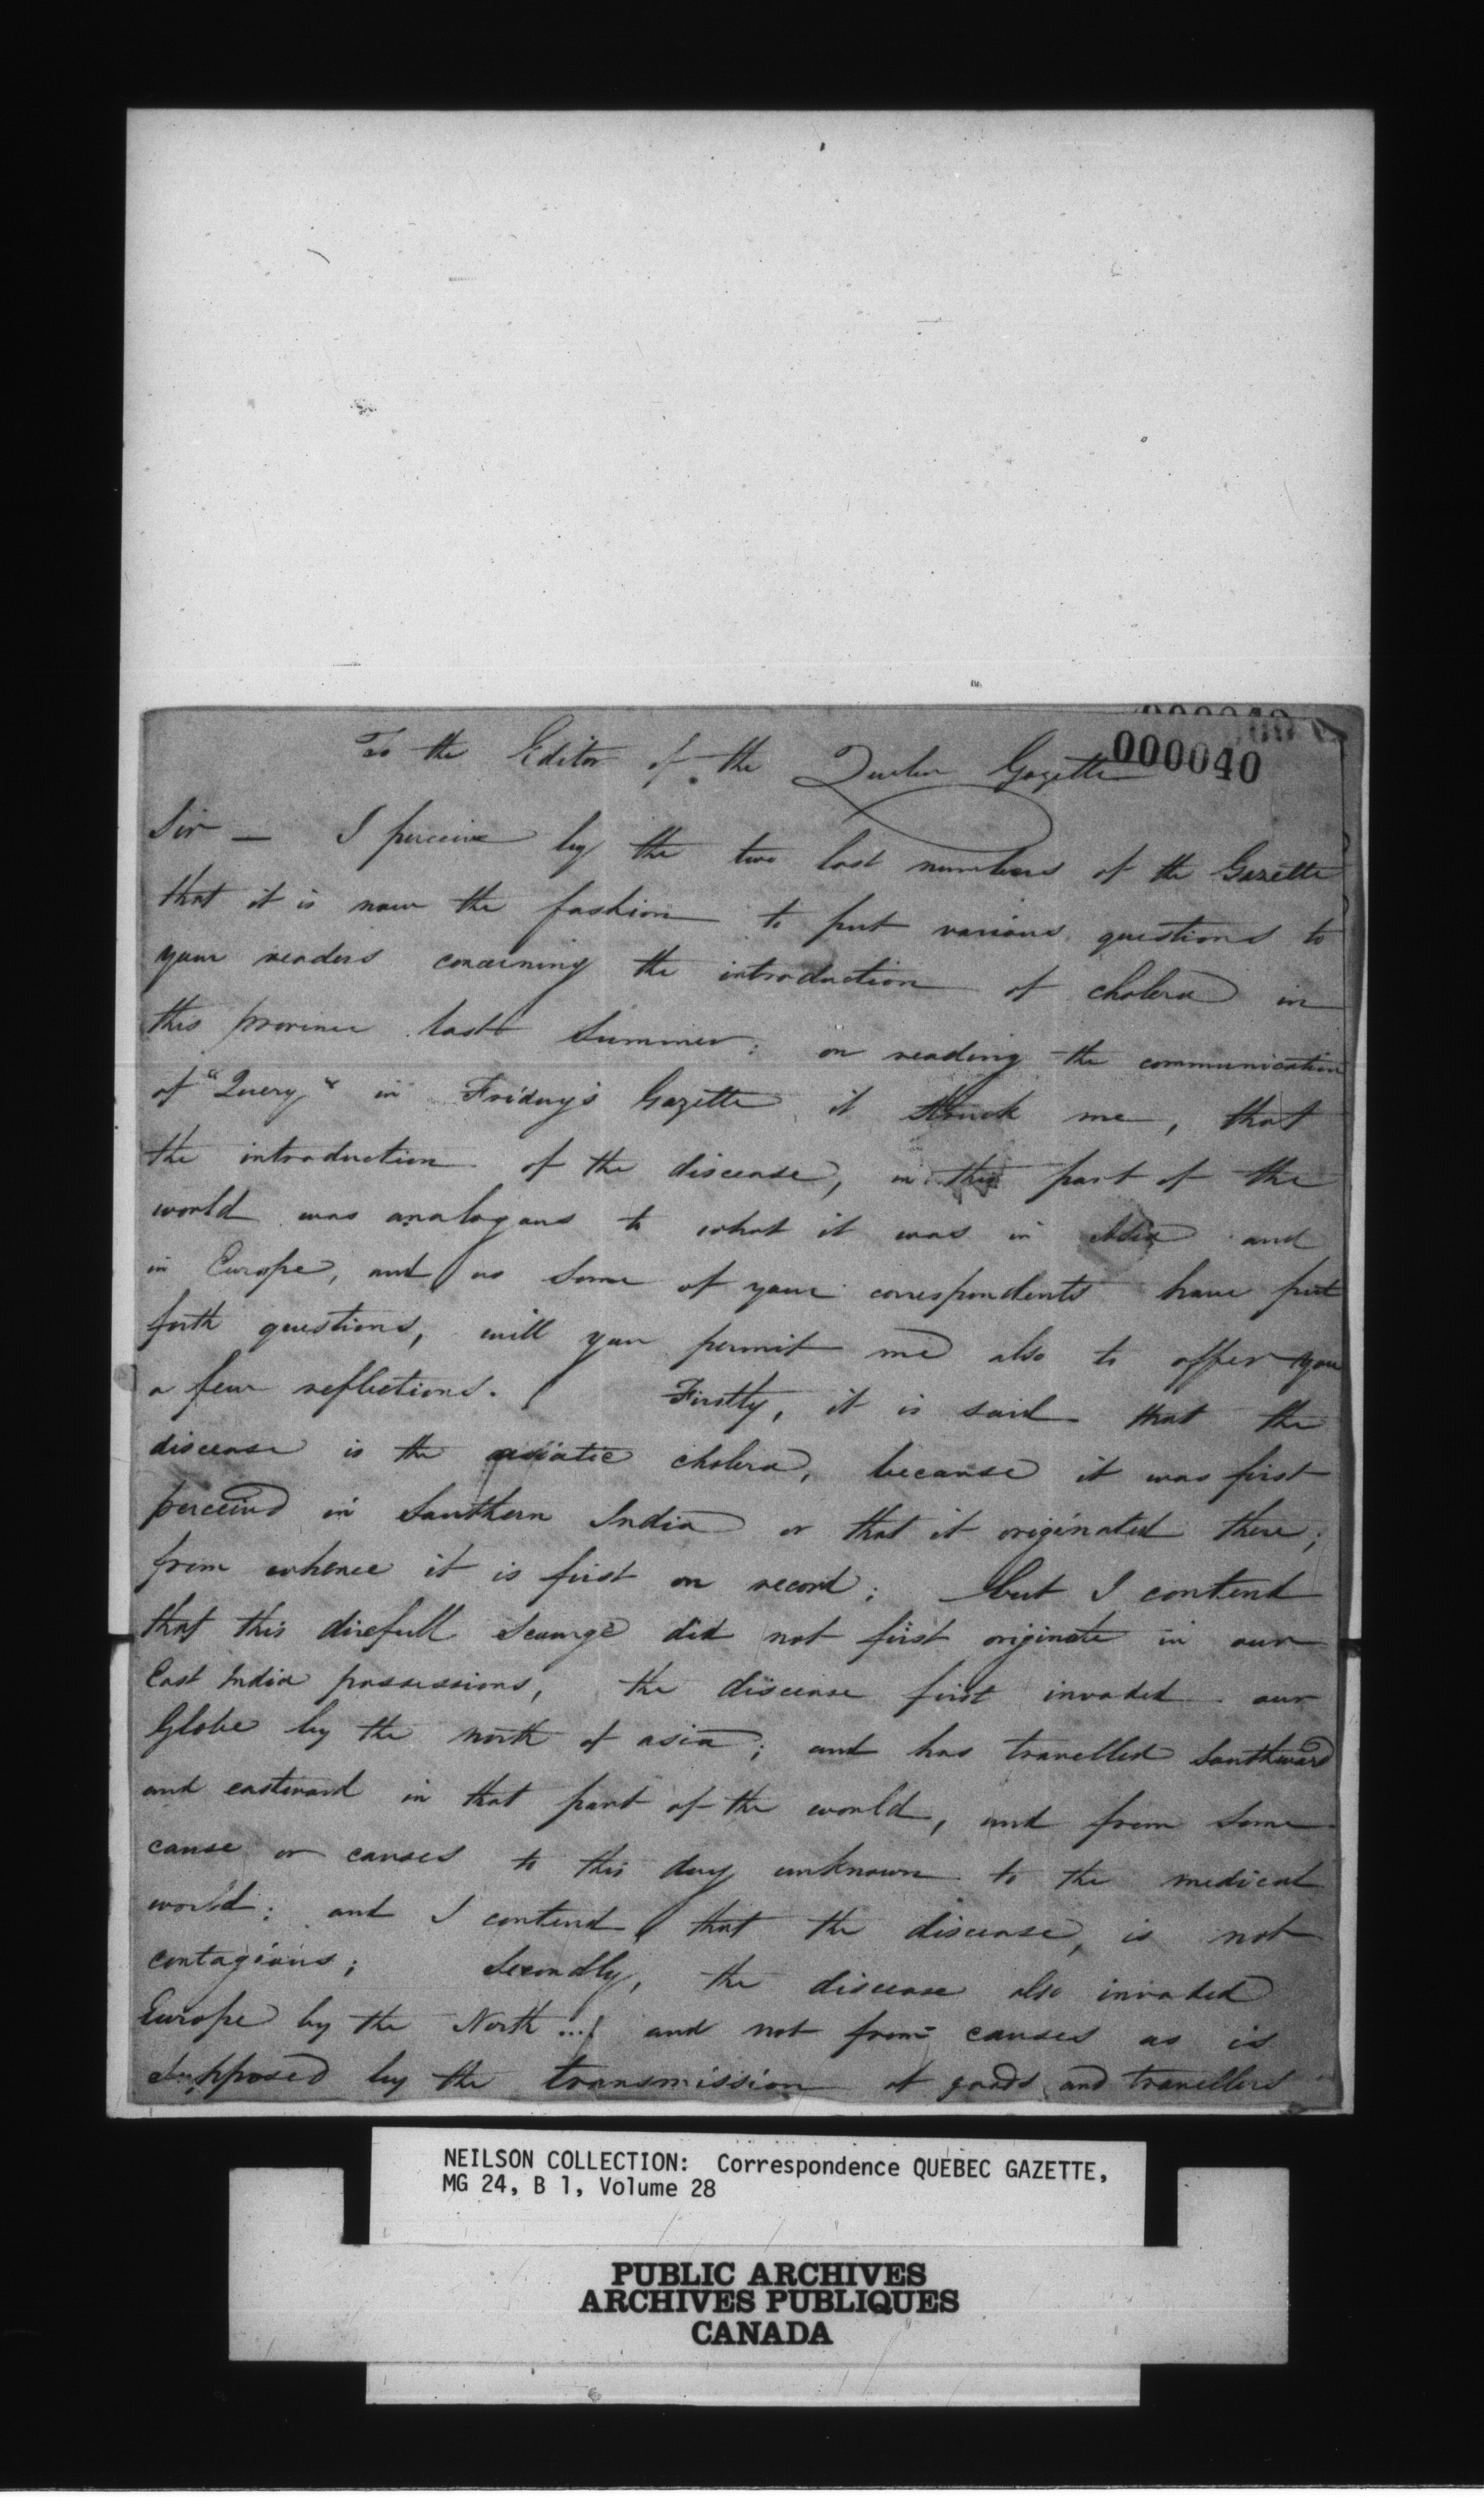 000040
To the Editor of the Quebec Gazette
Sir — I perceive by the two last numbers of the Gazette
that it is now the fashion to put various questions to
your readers concerning the introduction of cholera in
this province last Summer: on reading the communication
of "Query" in Friday's Gazette it struck me, that
the introduction of the disease, in this part of the
world was analogous to what it was in Asia and
in Europe, and as some of your correspondents have put
forth questions, will you permit me also to offer you
a few reflections. Firstly, it is said that the
disease is the asiatic cholera, because it was first
perceived in Southern India or that it originated there;
from whence it is first on record; but I contend
that this direfull scourge did not first originate in our
East India possessions, the disease first invaded our
Globe by the north of asia; and has travelled Southward
and eastward in that part of the world, and from some
cause or causes to this day unknown to the medical
world: and I contend that the disease, is not
contagious; Secondly, the disease also invaded
Europe by the North...! and not from causes as is
supposed by the transmission of goods and travellers
NEILSON COLLECTION: Correspondence QUEBEC GAZETTE,
MG 24, B 1, Volume 28
PUBLIC ARCHIVES
ARCHIVES PUBLIQUES
CANADA